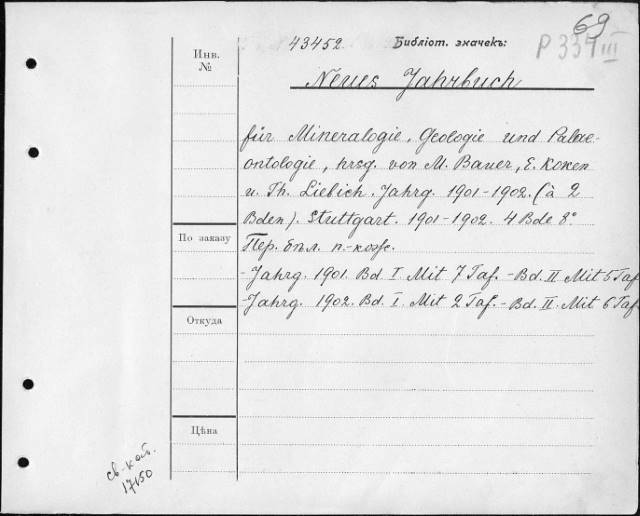 69
43452. Библіот. значекъ: P 334 III
Инв.
№
Neues Jahrbuch
für Mineralogie, Geologie und Palae-
ontologie, hrsg. von M. Bauer, E. Koken
u. Th. Liebich. Jahrg. 1901-1902. (à 2
Bden). Stuttgart. 1901-1902. 4 Bde 8°
По заказу
Пер. бпл. п.-кож.
-Jahrg. 1901. Bd. I Mit 7 Taf. - Bd. II Mit 5 Taf.
-Jahrg. 1902. Bd. I. Mit 2 Taf. - Bd. II. Mit 6 Taf.
Откуда
Цѣна
св-кат.
17150